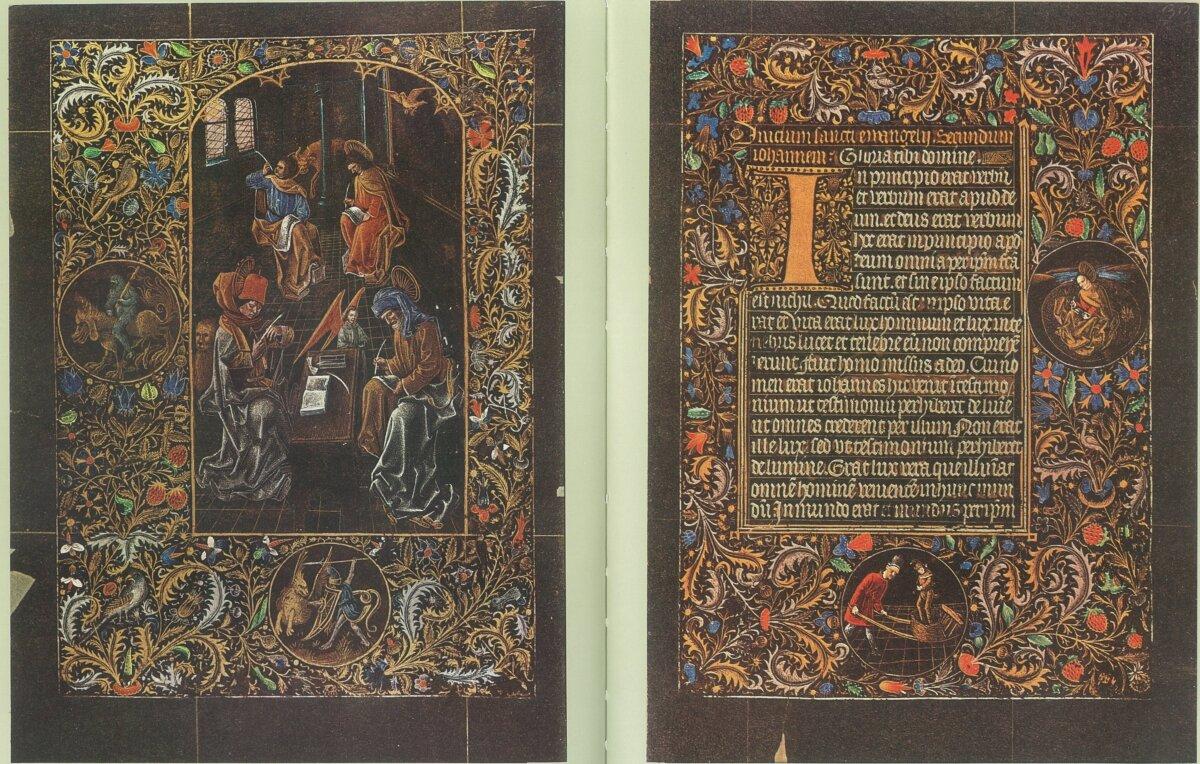 Inicium sancti ewangelij Secundum
iohannem: Gloria tibi domine.
In principio erat verbū
et verbum erat apud de
um. et deus erat verbum
hoc erat in principio apd
deum omnia per ipm fcā
sunt. et sine ipso factum
est nichil. Quod factū est in ipso vita e
rat et vita erat lux hominum et lux in te
nebris lucet et tenebre eū non comprehē
erunt. fuit homo missus a deo. Cui no
men erat iohannes hic venit i testimo
nium ut testimoniū perhiberet de lumē
ut omnes crederent per illum Non erat
ille lux sed ut testimonium perhiberet
de lumine. Erat lux vera que illūiat
omnē hominē venientē in hunc mun
dū In mundo erat et mundus per ipm